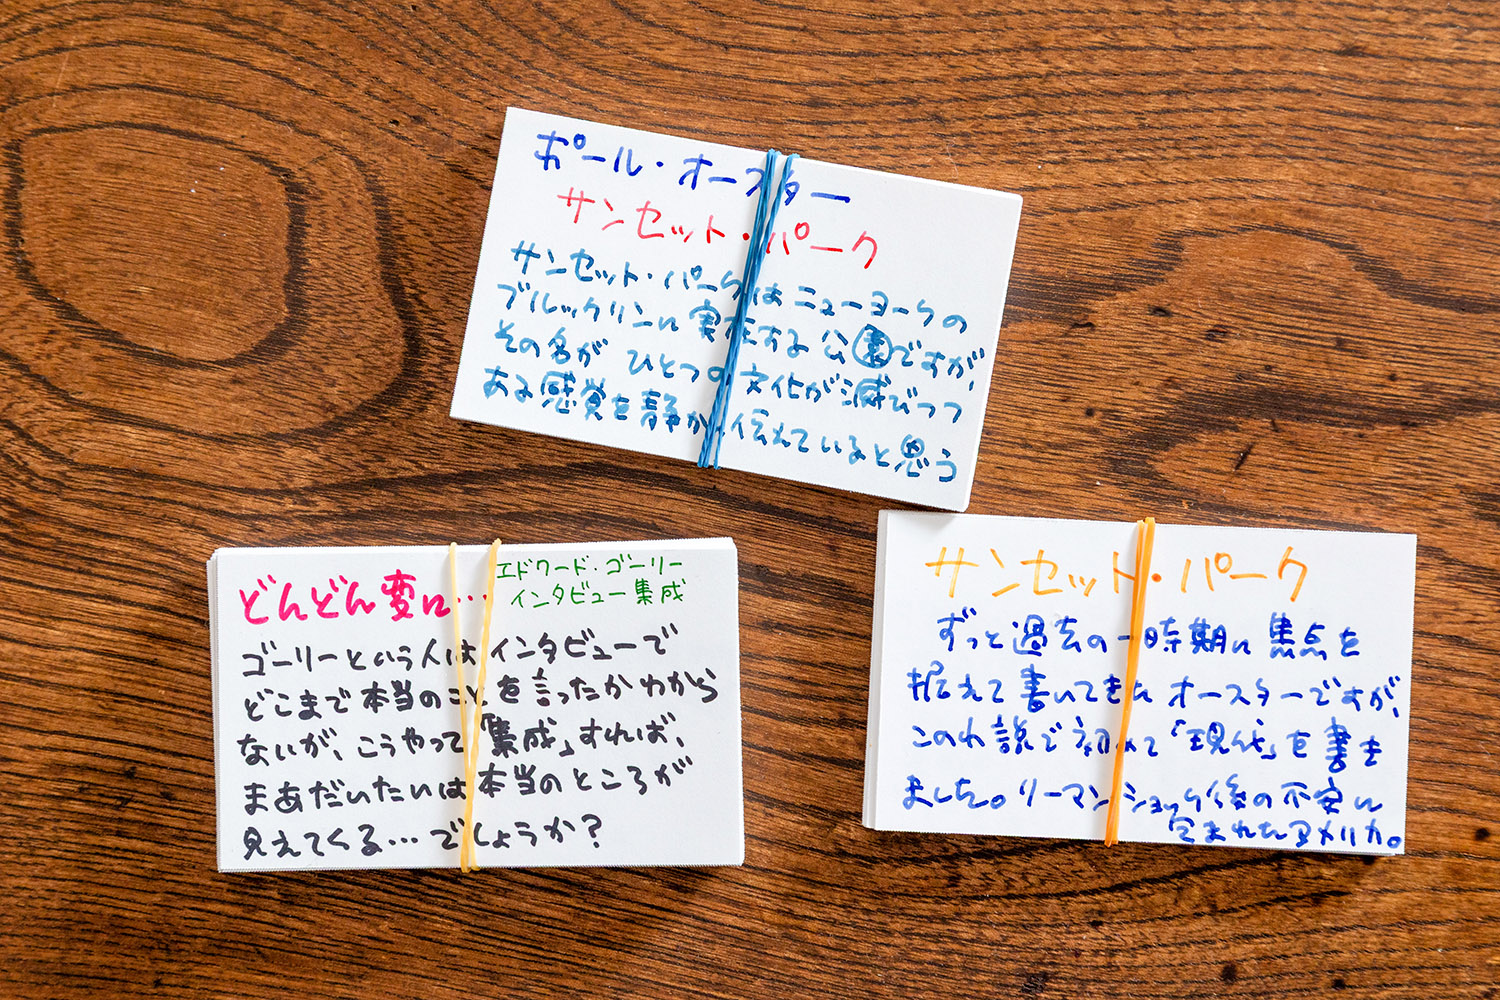 ポール・オースター
サンセット・パーク
サンセット・パークはニューヨークの
ブルックリンに実在する公園ですが、
その名が ひとつの文化が滅びつつ
ある感覚を静かに伝えていると思う
どんどん変に…
エドワード・ゴーリー
インタビュー集成
ゴーリーという人はインタビューで
どこまで本当のことを言ったかわから
ないが、こうやって「集成」すれば、
まあだいたいは本当のところが
見えてくる…でしょうか？
サンセット・パーク
ずっと過去の一時期に焦点を
据えて書いてきたオースターですが、
この小説で初めて「現代」を書き
ました。リーマンショック後の不安に
包まれたアメリカ。